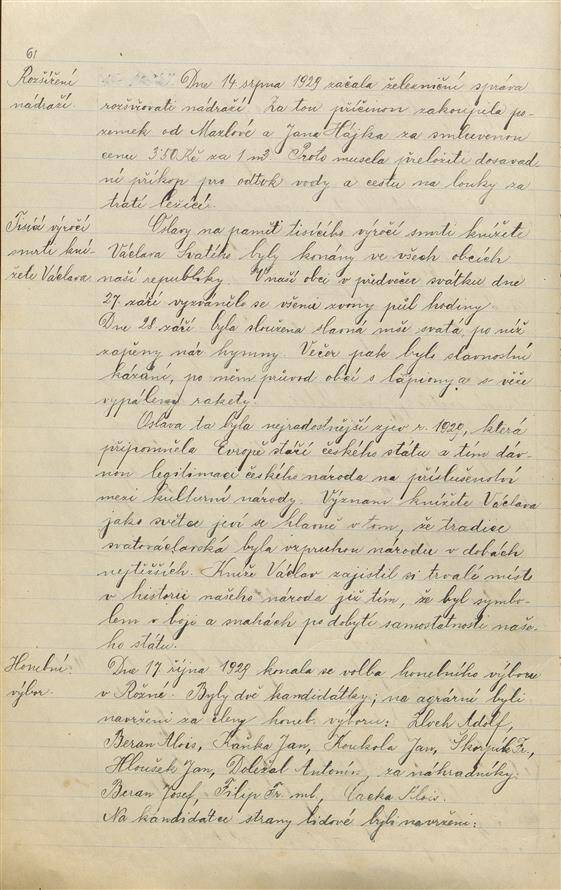 61
Rozšíření
nádraží.
Dne 14. srpna 1929 začala železniční správa
rozšiřovati nádraží. Za tou příčinou zakoupila po-
zemek od Mazlové a Jana Hájka za smluvenou
cenu 3·50 Kč za 1 m2. Proto musela přeložiti dosavad
ní příkop pro odtok vody a cestu na louky za
tratí ležící.
Tisící výročí
smrti kní
žete Václava
Oslavy na paměť tisícího výročí smrti knížete
Václava Svatého byly konány ve všech obcích
naší republiky. V naší obci v předvečer svátku dne
27. září vyzvánělo se všemi zvony půl hodiny.
Dne 28. září byla sloužena slavná mše svatá, po níž
zapěny nár. hymny. Večer pak bylo slavnostní
kázání, po něm průvod obcí s lampiony a s věže
vypáleny rakety.
Oslava ta byla nejradostnější zjev r. 1929, která
připomněla Evropě stáří českého státu a tím dáv-
nou legitimaci českého národa na příslušenství
mezi kulturní národy. Význam knížete Václava
jako světce jeví se hlavně v tom, že tradice
svatováclavská byla vzpruhou národu v dobách
nejtěžších. Kníže Václav zajistil si trvalé místo
v historii našeho národa již tím, že byl symbo-
lem v boje a snahách po dobytí samostatnosti naše-
ho státu.
Honební
výbor.
Dne 17. října 1929 konala se volba honebního výboru
v Rožné. Byly dvě kandidátky; na agrární byli
navrženi za členy honeb. výboru: Zloch Adolf,
Beran Alois, Kaňka Jan, Koukola Jan, Škorpík Fr.,
Hloušek Jan, Doležal Antonín, za náhradníky:
Beran Josef, Filip Fr. ml., Alois.
Na kandidátce strany lidové byli navrženi: